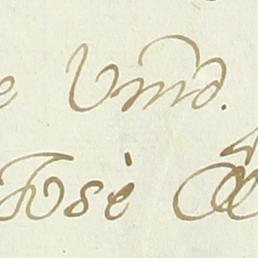 e Vmd.
Josè